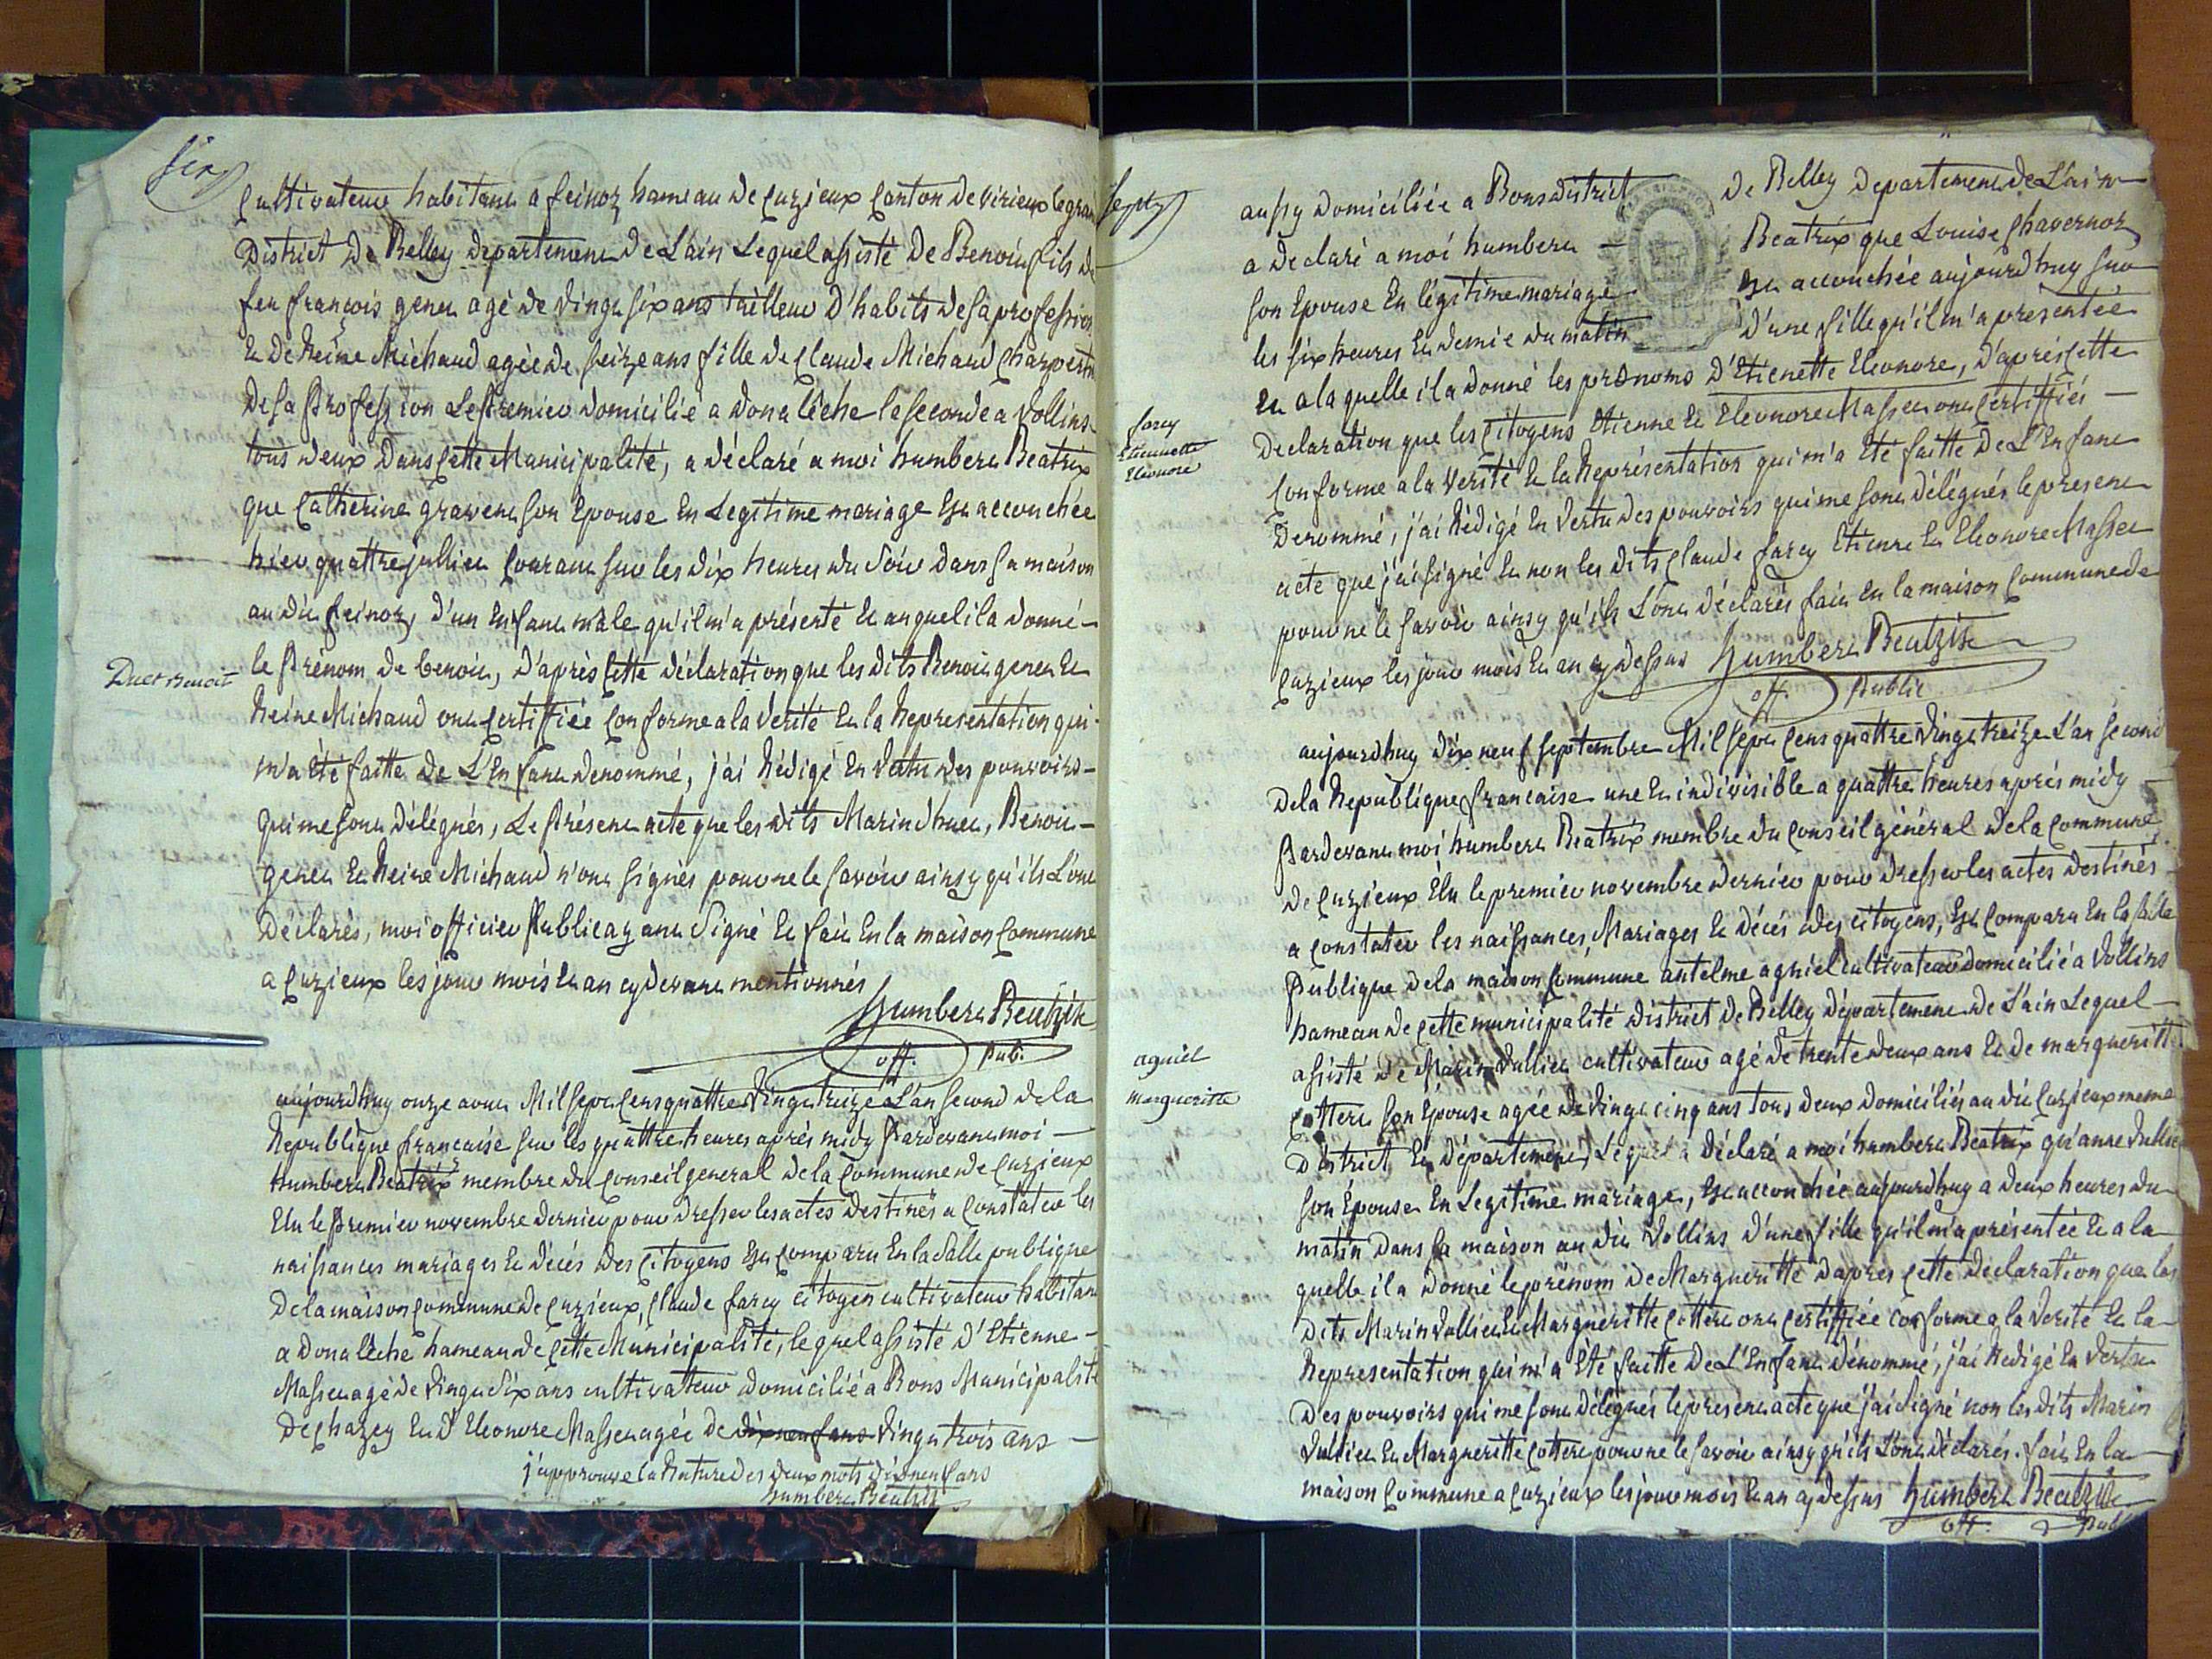 six
Cultivateur habitant a feinoz hameau de Cuzieux Canton de virieux le gra
District De Belley departement de L'ain Lequel assisté De Benoit fils de
feu françois genet agé de vingt six ans tailleur D'habits de sa profession
et de Reine Michaud agée de seize ans fille de Claude Michaud Charpent
De sa profession Le premier domicilié a Dona lèche le seconde a Vollins
tous deux Dans Cette Municipalité, a déclaré a moi humbert Beatrix
que Catherine gravent son Epouse En Legitime mariage Est accouchée
hier quattre juillet Courant sur les dix heures du soir dans sa maison
au dit feinoz, d'un Enfant mâle qu'il m'a présenté et auquel il a donné
Duet Benoit
le Prénom de benoit, d'après Cette déclaration que les dits Benoit genet et
Reine Michaud ont Certiffiée Conforme a la Verité Et la Representation qui
m'a Eté faitte de L'Enfant denommé, j'ai Rédigé En Vertu des pouvoirs
qui me sont Délégués, Le Présent acte que les dits Marin dhuet, Benoit
genet Et Reine Michaud n'ont signés pour ne le savoir ainsy qu'ils L'ont
Déclarés, moi officier Public ayant signé Et fait En la maison Commune
a Cuzieux les jour mois Et an cy devant mentionnés
humbert Beatrix
off. Pub.
aujourdhuy onze avut Mil sept Cens quattre Vingt treize L'an second de la
Republique francaise sur les quattre heures après midy Pardevant moi
humbert Beatrix membre du Conseil general de la Commune de Cuzieux
Elu le Premier novembre dernier pour dresser les actes Destinés a Constater les
naissances mariages Et décés des Citoyens Est Comparu En la Salle publique
De la maison Commune de Cuzieux, Claude farcy citoyen cultivateur habitant
a Dona lèche hameau de Cette Municipalité, lequel assisté d'Etienne
Masset agé de Vingt Six ans cultivateur domicilié a Bons Municipalité
De Chazey Et d'Eleonore Masset agée de dix neuf ans Vingt trois ans
j'approuve la Rature des deux mots dix neuf ans
humbert Beatrix
sept
aussy domiciliée a Bons district De Belley departement de L'ain
a Declaré a moi humbert Beatrix que Louise Chavernoz
son Epouse En légitime mariage Est accouchée aujourdhuy sur
les six heures Et demie du matin D'une fille qu'il m'a presentée
Et a la quelle il a donné les prénoms D'Etienette Eleonore, D'après Cette
farcy
Etiennette
Eleonore
Declaration que les Citoyens Etienne Et Eleonore Masset ont Certiffiés
Conforme a la Verité Et la Représentation qui m'a Eté faitte De L'Enfant
Denommé, j'ai Rédigé En Vertu des pouvoirs qui me sont délégués le present
acte que j'ai signé Et non les Dits Claude farcy Etienne Et Eleonore Masset
pour ne le savoir ainsy qu'ils L'ont déclarés fait En la maison Commune de
Cuzieux les jour mois Et an cy dessus humbert Beatrix
off. Public
aujourdhuy dix neuf septembre Mil sept Cens quattre Vingt treize L'an second
De la Republique francaise une Et indivisible a quattre heures après midy
Pardevant moi humbert Beatrix membre du Conseil général de la Commune
de Cuzieux Elu le premier novembre dernier pour dresser les actes destinés
a Constater les naissances Mariages Et décés des citoyens, Est Comparu En la salle
Publique de la maison Commune antelme agniel cultivateur domicilié a Vollins
hameau de Cette municipalité district de Belley département de L'ain Lequel
agniel
margueritte
assisté de Marin Vulliet cultivateur agé de trente deux ans Et de margueritte
Cottere son Epouse agée de Vingt cinq ans tous deux domiciliés au dit Cuzieux meme
District Et département, Lequel a déclaré a moi humbert Beatrix qu'anne Vulliet
son Epouse En Legitime mariage, Est accouchée aujourdhuy a deux heures du
matin dans sa maison au dit Vollins d'une fille qu'il m'a présentée Et a la
quelle il a donné le prénom de Margueritte d'apres cette declaration que les
dits Marin Vulliet Et Margueritte Cottere ont Certiffiée conforme a la Verité Et la
Representation qui m'a Eté faitte de L'Enfant dénommé, j'ai Redigé En Vertu
Des pouvoirs qui me sont délégués le present acte que j'ai signé non les dits Marin
Vulliet Et Margueritte Cottere pour ne le savoir ainsy qu'ils L'ont déclarés. fait En la
maison Commune a Cuzieux les jour mois Et an cy dessus humbert Beatrix
off. Publ